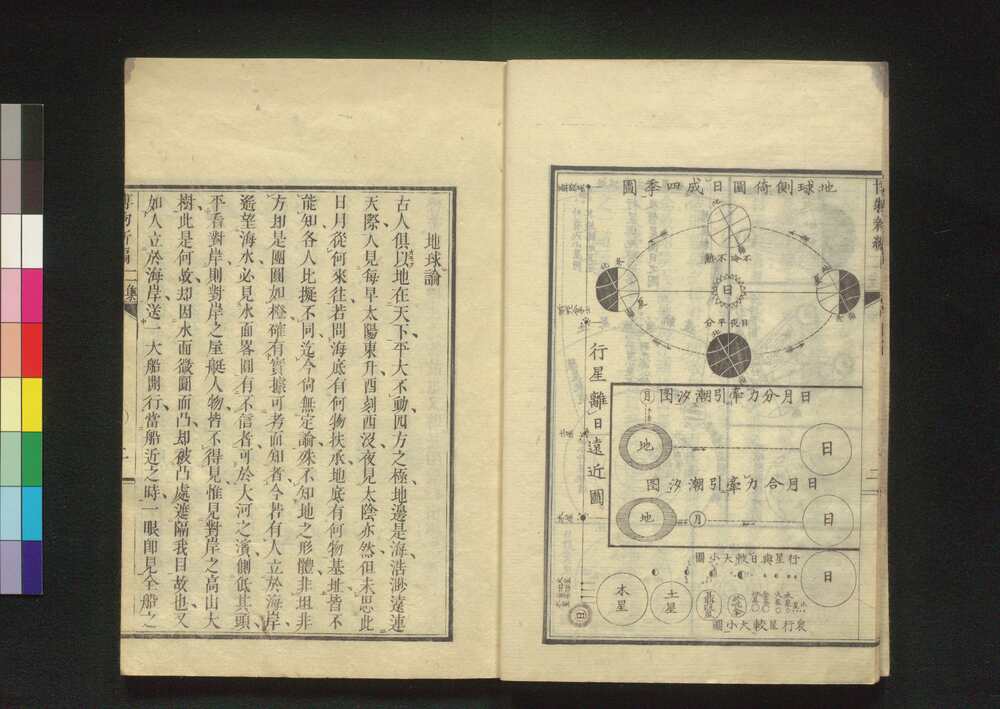 地球側倚圓日成四季圖
不冷不熱
日
日夜平分
行星離日遠近圖
日月分力牽引潮汐图
月
地
日
日月合力牽引潮汐图
地
月
日
行星與日較大小圖
日
木星
土星
衆行星較大小圖
日
地球論
古人俱以地在天下平大不動四方之極地邊是海浩渺遠連
天際人見每早太陽東升酉刻西沒夜見太陰亦然但未思此
日月從何來往若問海底有何物扶承地底有何物基址皆不
能知各人比擬不同迄今尙無定論殊不知地之形體非坦非
方却是團圓如橙確有實據可考而知者今若有人立於海岸
遙望海水必見水面畧圓有不信者可於大河之濱側低其頭
平看對岸則對岸之屋艇人物皆不得見惟見對岸之高山大
樹此是何故却因水面微圓而凸却被凸處遮隔我目故也又
如人立於海岸送一大船開行當船近之時一眼卽見全船之